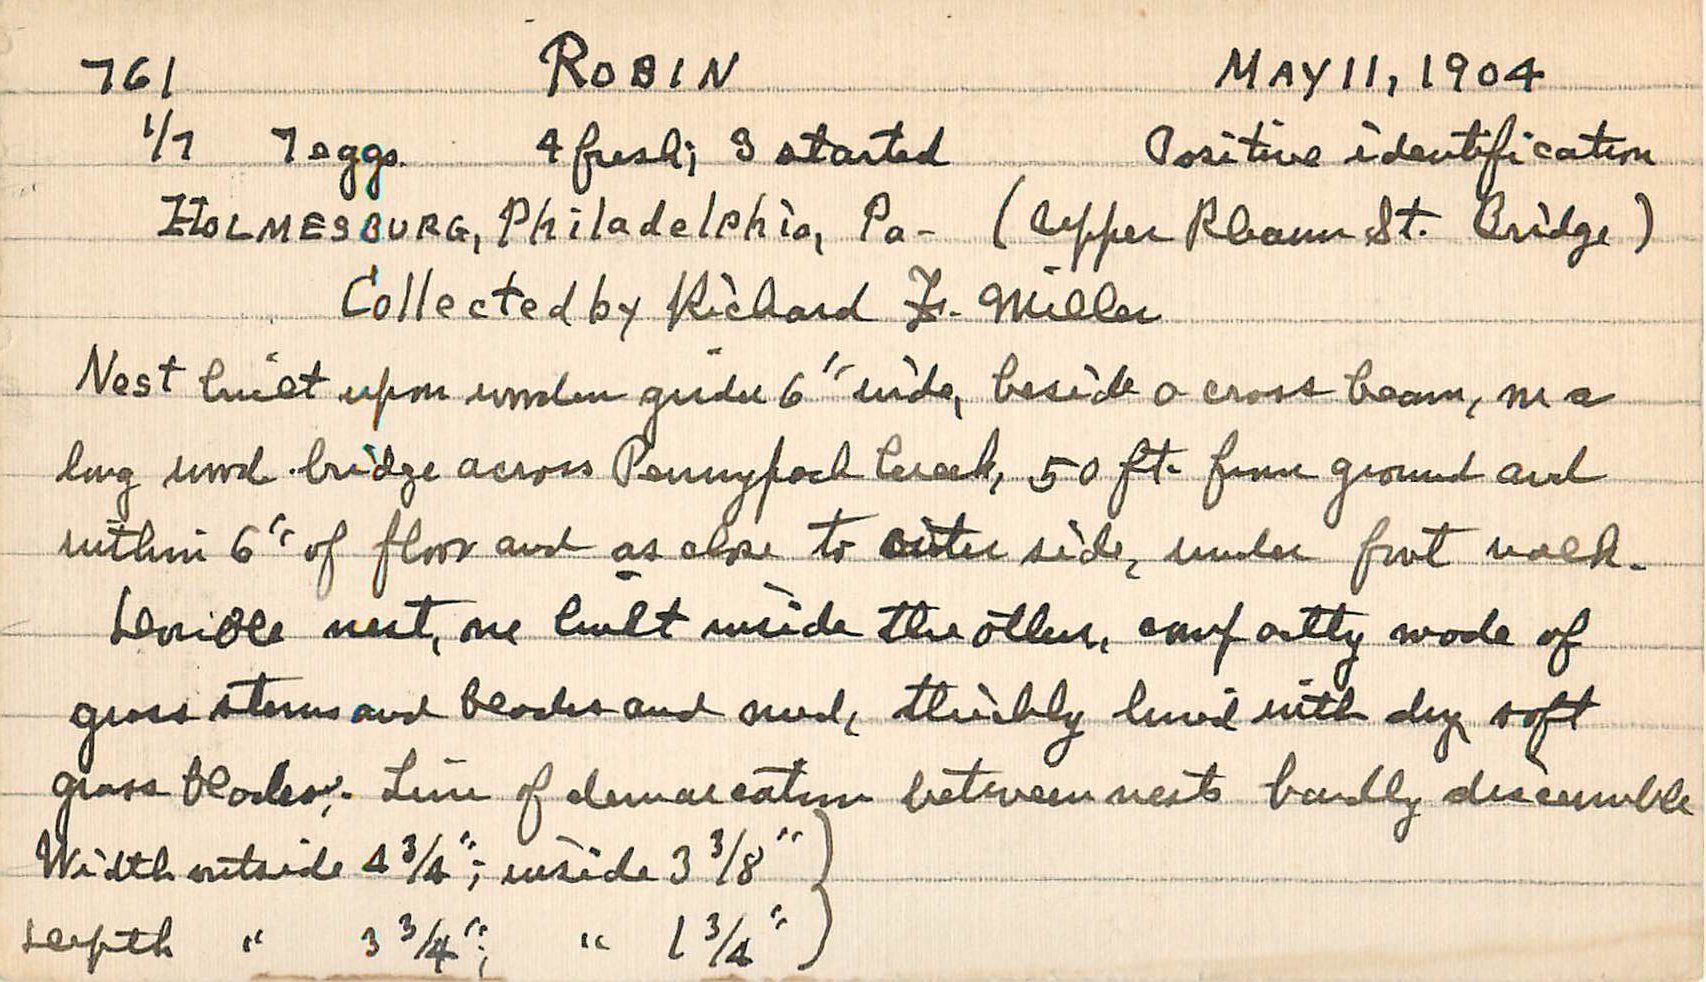 761 ROBIN MAY 11, 1904
1/7 7 eggs. 4 fresh; 3 started Positive identification
HOLMESBURG, Philadelphia, Pa- (Upper Rhawn St. Bridge)
Collected by Richard F. Miller
Nest built upon wooden girder 6" wide, beside a cross beam, on a
long wood bridge across Pennypack Creek, 50 ft. from ground and
within 6" of floor and as close to outer side, under foot walk.
Double nest, one built inside the other, compactly made of
grass stems and blades and mud, thickly lined with dry soft
grass blades. Line of demarcation between nests hardly discernible
Width outside 4 3/4"; inside 3 3/8" }
Depth " 3 3/4"; " 1 3/4" }